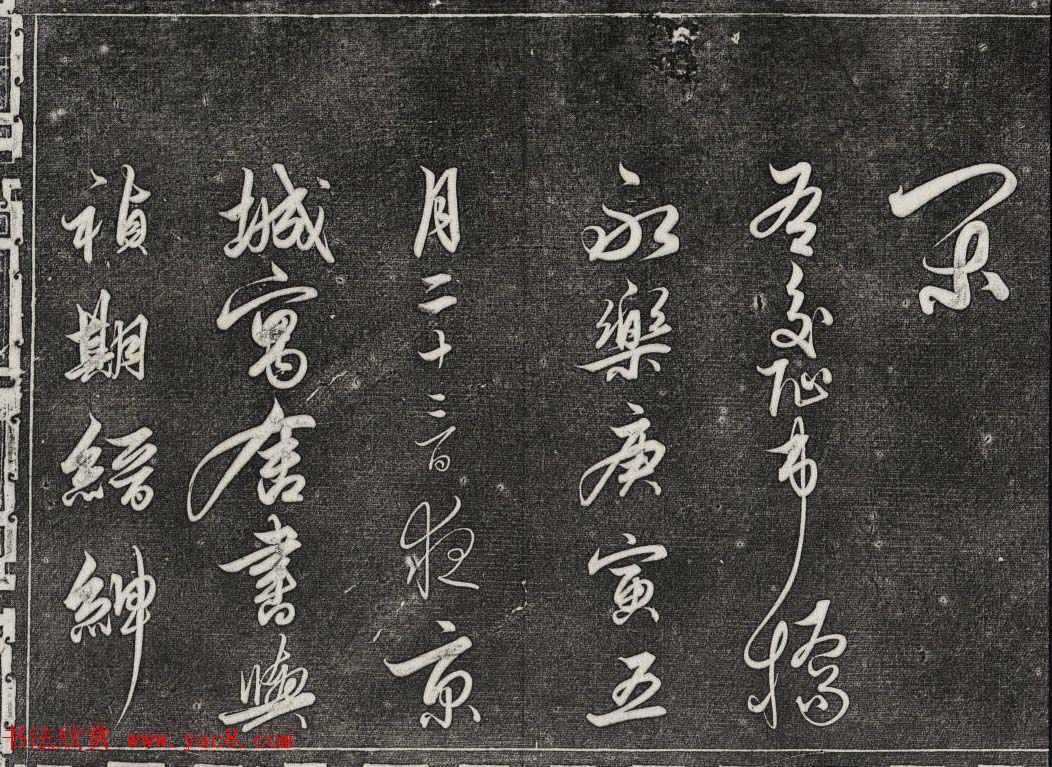 吾交阯市橋
永樂庚寅五
月二十二日夜京
城寓舍書與
禎期縉紳
书法欣赏 www.yac8.com